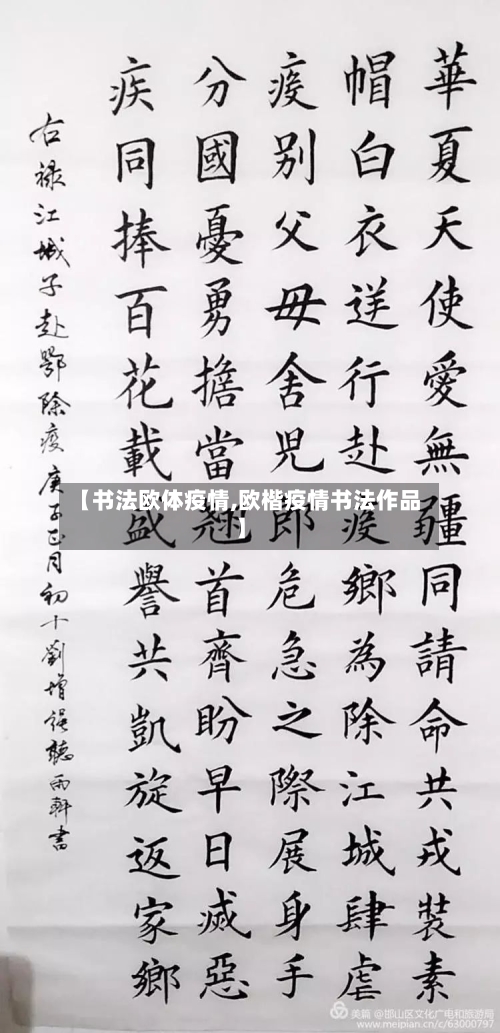 華夏天使愛無疆同請命共戎裝素
帽白衣送行赴疫鄉為除江城肆虐
疫别父母舍児郎危急之際展身手
分國憂勇擔當翹首齊盼早日滅惡
疾同捧百花載盛譽共凱旋返家鄉
右禄江城子赴鄂除疫庚子正月初十劉增 聽雨軒書
【书法欧体疫情,欧楷疫情书法作品
】
美篇 @邯山区文化广电和旅游局
www.meipian.cn/c/63000797